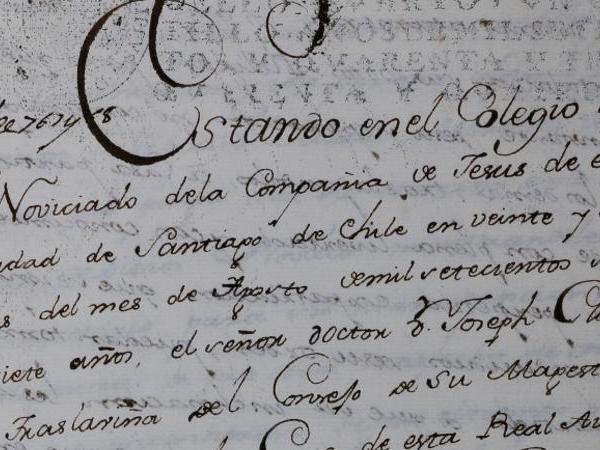 de 767 y 68
Estando en el Colegio
Noviciado dela Compañia de Jesus de e
udad de Santiago de Chile en veinte y
s del mes de Agosto demil setecientos s
iete años, el señor doctor d. Joseph Cla
Traslaviña del Consejo de Su Magest
de esta Real Au